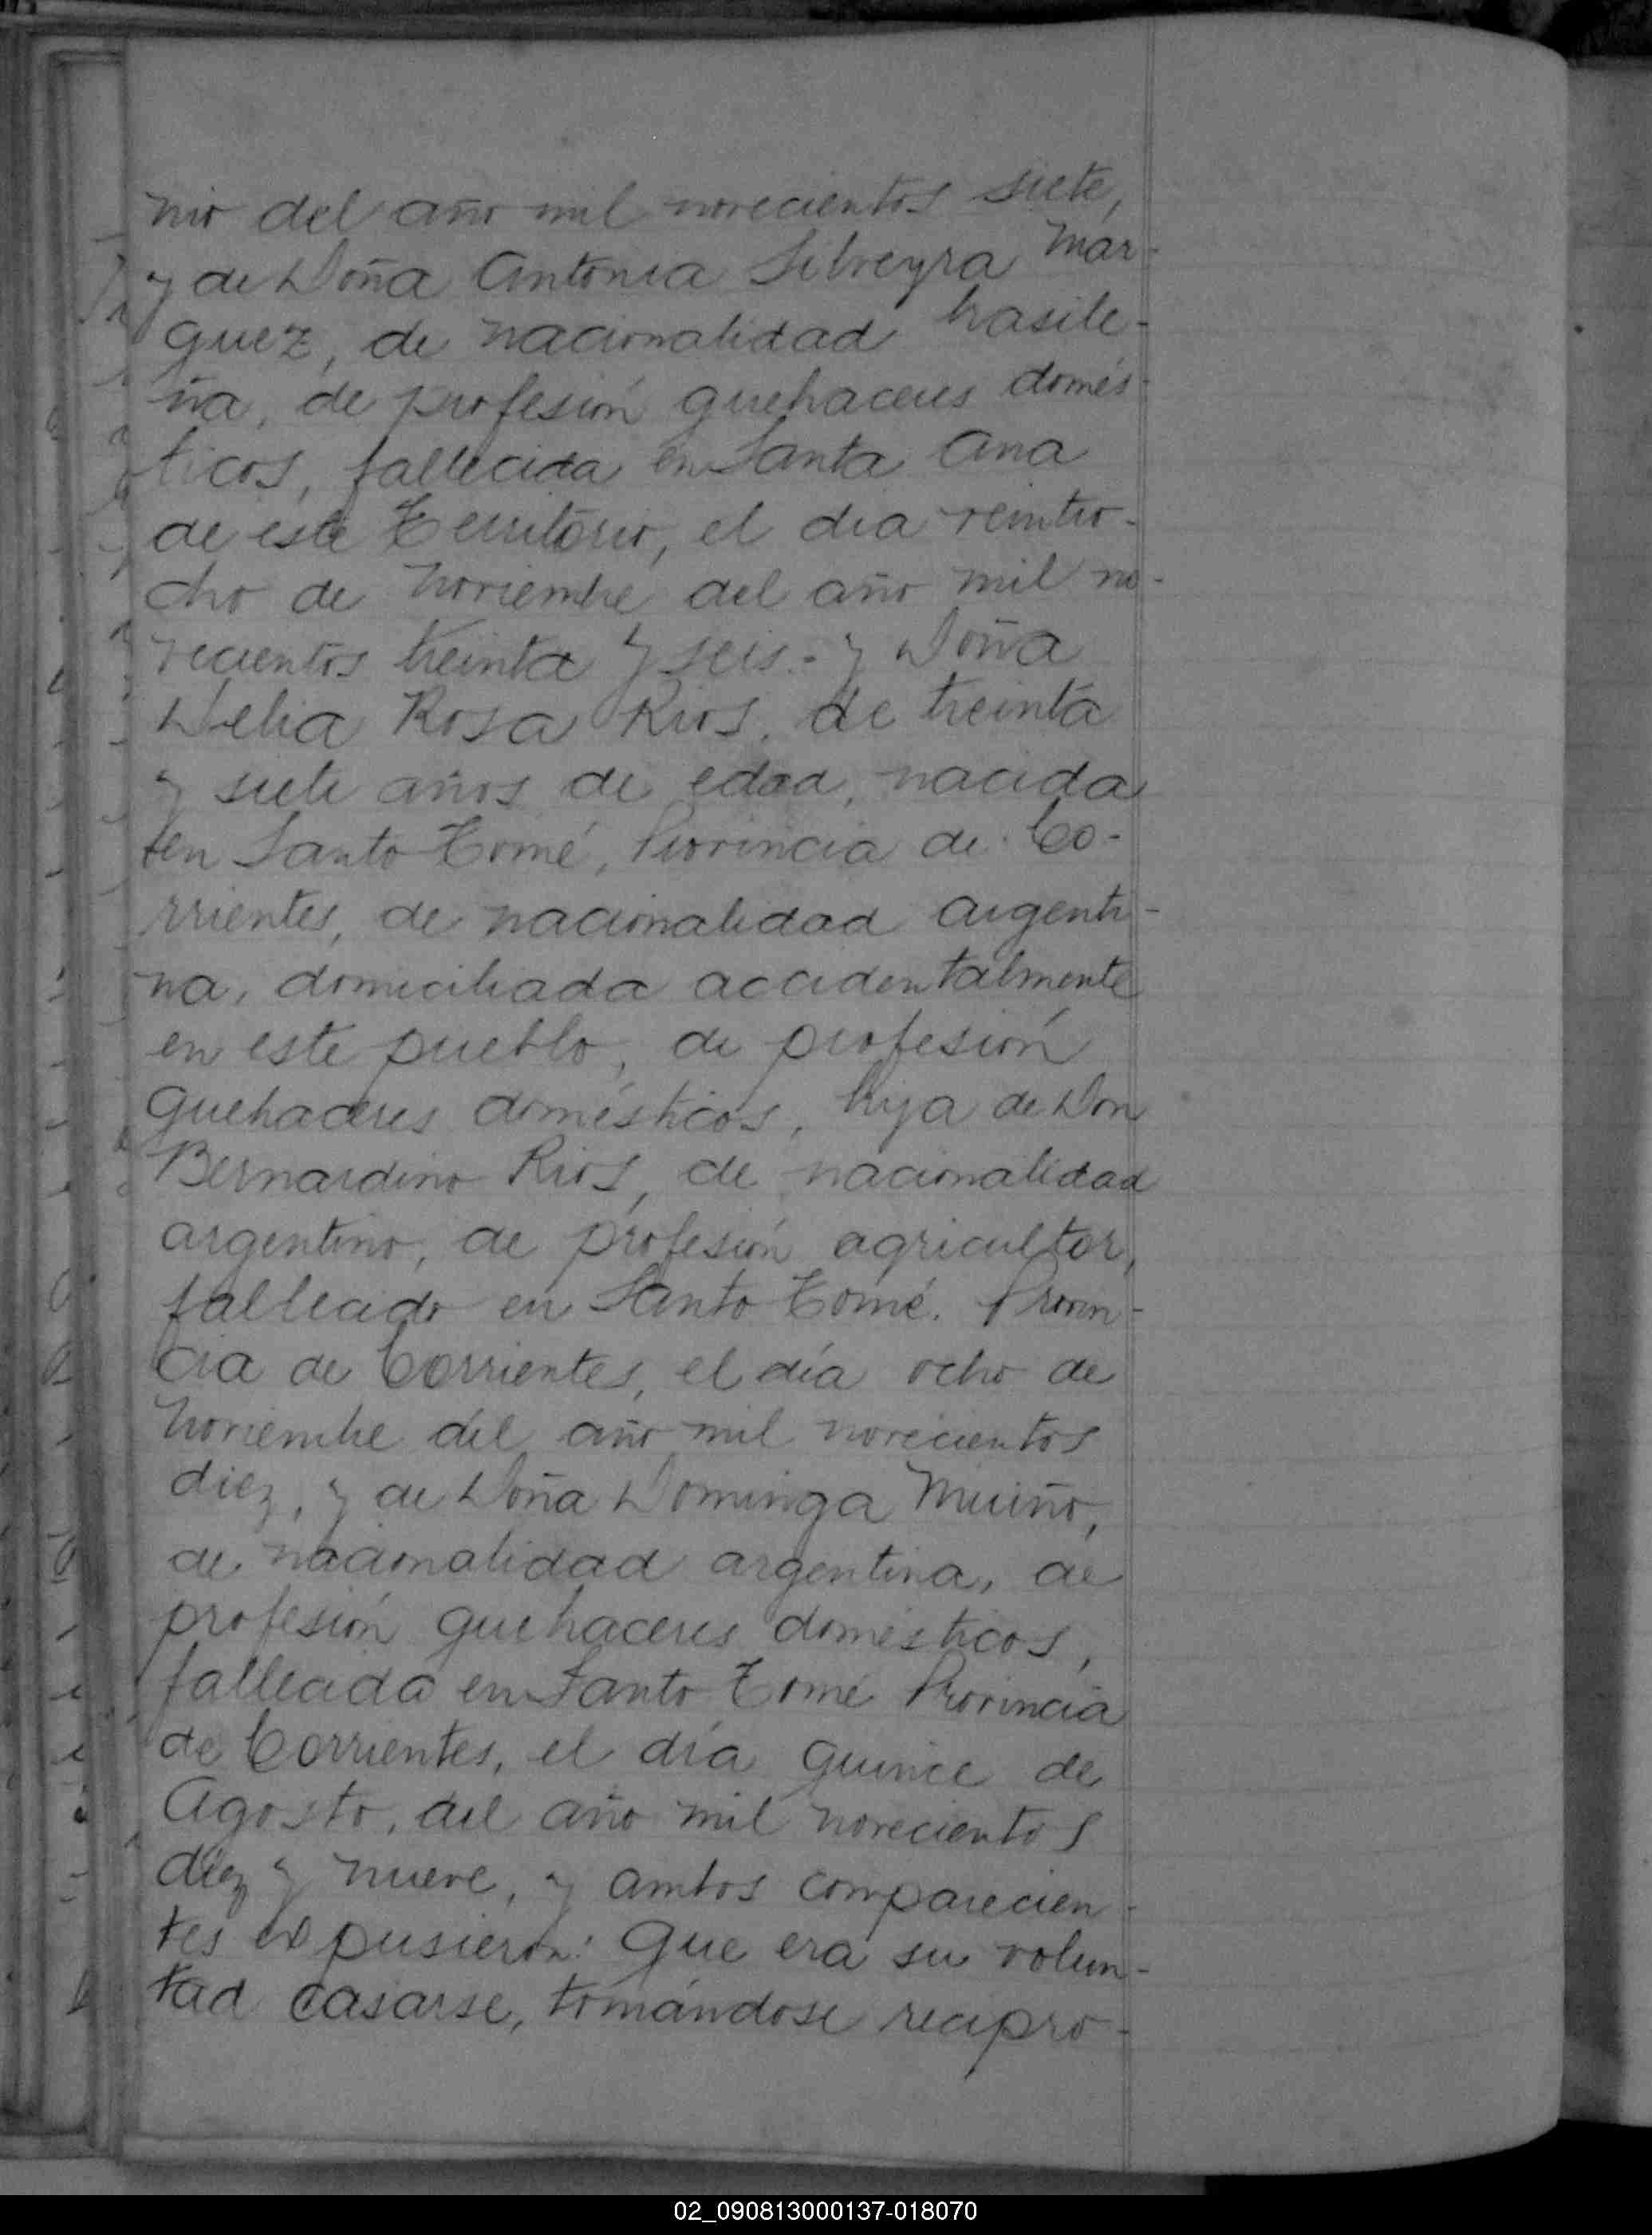 nio del año mil novecientos siete,
y de Doña Antonia Silveyra Mar-
quez, de nacionalidad brasile-
ña, de profesión quehaceres domés-
ticos, fallecida en Santa Ana
de este Territorio, el dia veintio-
cho de Noviembre del año mil no-
vecientos treinta y seis.- y Doña
Delia Rosa Rios, de treinta
y siete años de edad, nacida
en Santo Tomé, Provincia de Co-
rrientes, de nacionalidad argenti-
na, domiciliada accidentalmente
en este pueblo, de profesión
quehaceres domésticos, hija de Don
Bernardino Rios, de nacionalidad
argentino, de profesión agricultor,
fallecido en Santo Tomé. Provin-
cia de Corrientes, el día ocho de
Noviembre del año mil novecientos
diez, y de Doña Dominga Muiño,
de nacionalidad argentina, de
profesión quehaceres domésticos,
fallecida en Santo Tomé Provincia
de Corrientes, el día quince de
Agosto, del año mil novecientos
diez y nueve, y ambos comparecien-
tes expusieron: Que era su volun-
tad casarse, tomándose recipro-
02_090813000137-018070